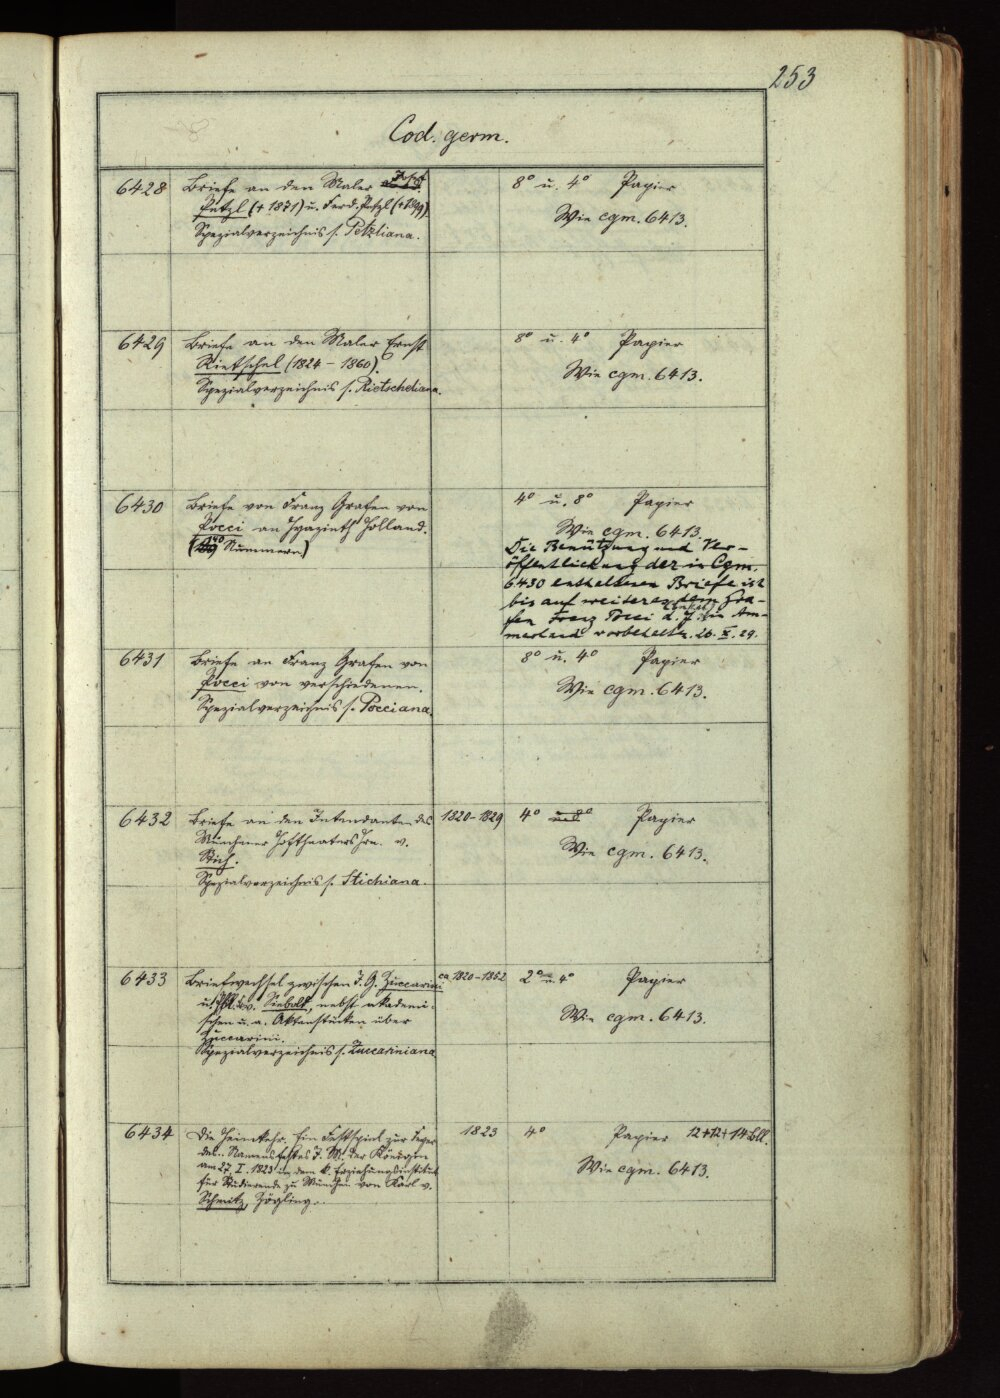 253
Cod. germ.
6428 Briefe an den Maler Jos. 8° u. 4° Papier
Petzl († 1871) u. Ferd. Petzl (†1899) Wie cgm. 6413.
Spezialverzeichnis s. Petzliana.
6429 Briefe an den Maler Ernst 8° u. 4° Papier
Rietschel (1824 – 1860). Wie cgm. 6413.
Spezialverzeichnis s. Rietscheliana.
6430 Briefe von Franz Grafen von 4° u. 8° Papier
Pocci an Hyazinth Holland. Wie cgm. 6413.
(40 Nummern)
Die Benützung und Ver-
öffentlichung der in Cgm.
6430 enthaltenen Briefe ist
bis auf weiteres dem Gra-
fen Franz Pocci d. J. (Enkel) in Am-
merland vorbehalten. 26. X. 29.
6431 Briefe an Franz Grafen von 8° u. 4° Papier
Pocci von verschiedenen. Wie cgm. 6413.
Spezialverzeichnis s. Pocciana.
6432 Briefe an den Intendanten des 1820–1829 4° und 8° Papier
Münchner Hoftheaters Frn. v. Wie cgm. 6413.
Stich.
Spezialverzeichnis s. Stichiana.
6433 Briefwechsel zwischen J. G. Zuccarini ca. 1820–1852 2° u. 4° Papier
u. Phil. v. Siebold, nebst akademi- Wie cgm. 6413.
schen u. a. Aktenstücken über
Zuccarini.
Spezialverzeichnis s. Zuccariniana
6434 Die Heimkehr. Ein Festspiel zur Feyer 1823 4° Papier 12+12+14 Bll.
des Namensfestes J. M. der Königin Wie cgm. 6413.
am 27. I. 1823 in dem k. Erziehungsinstitut
für Studierende zu München von Karl v.
Schmitz, Zögling.